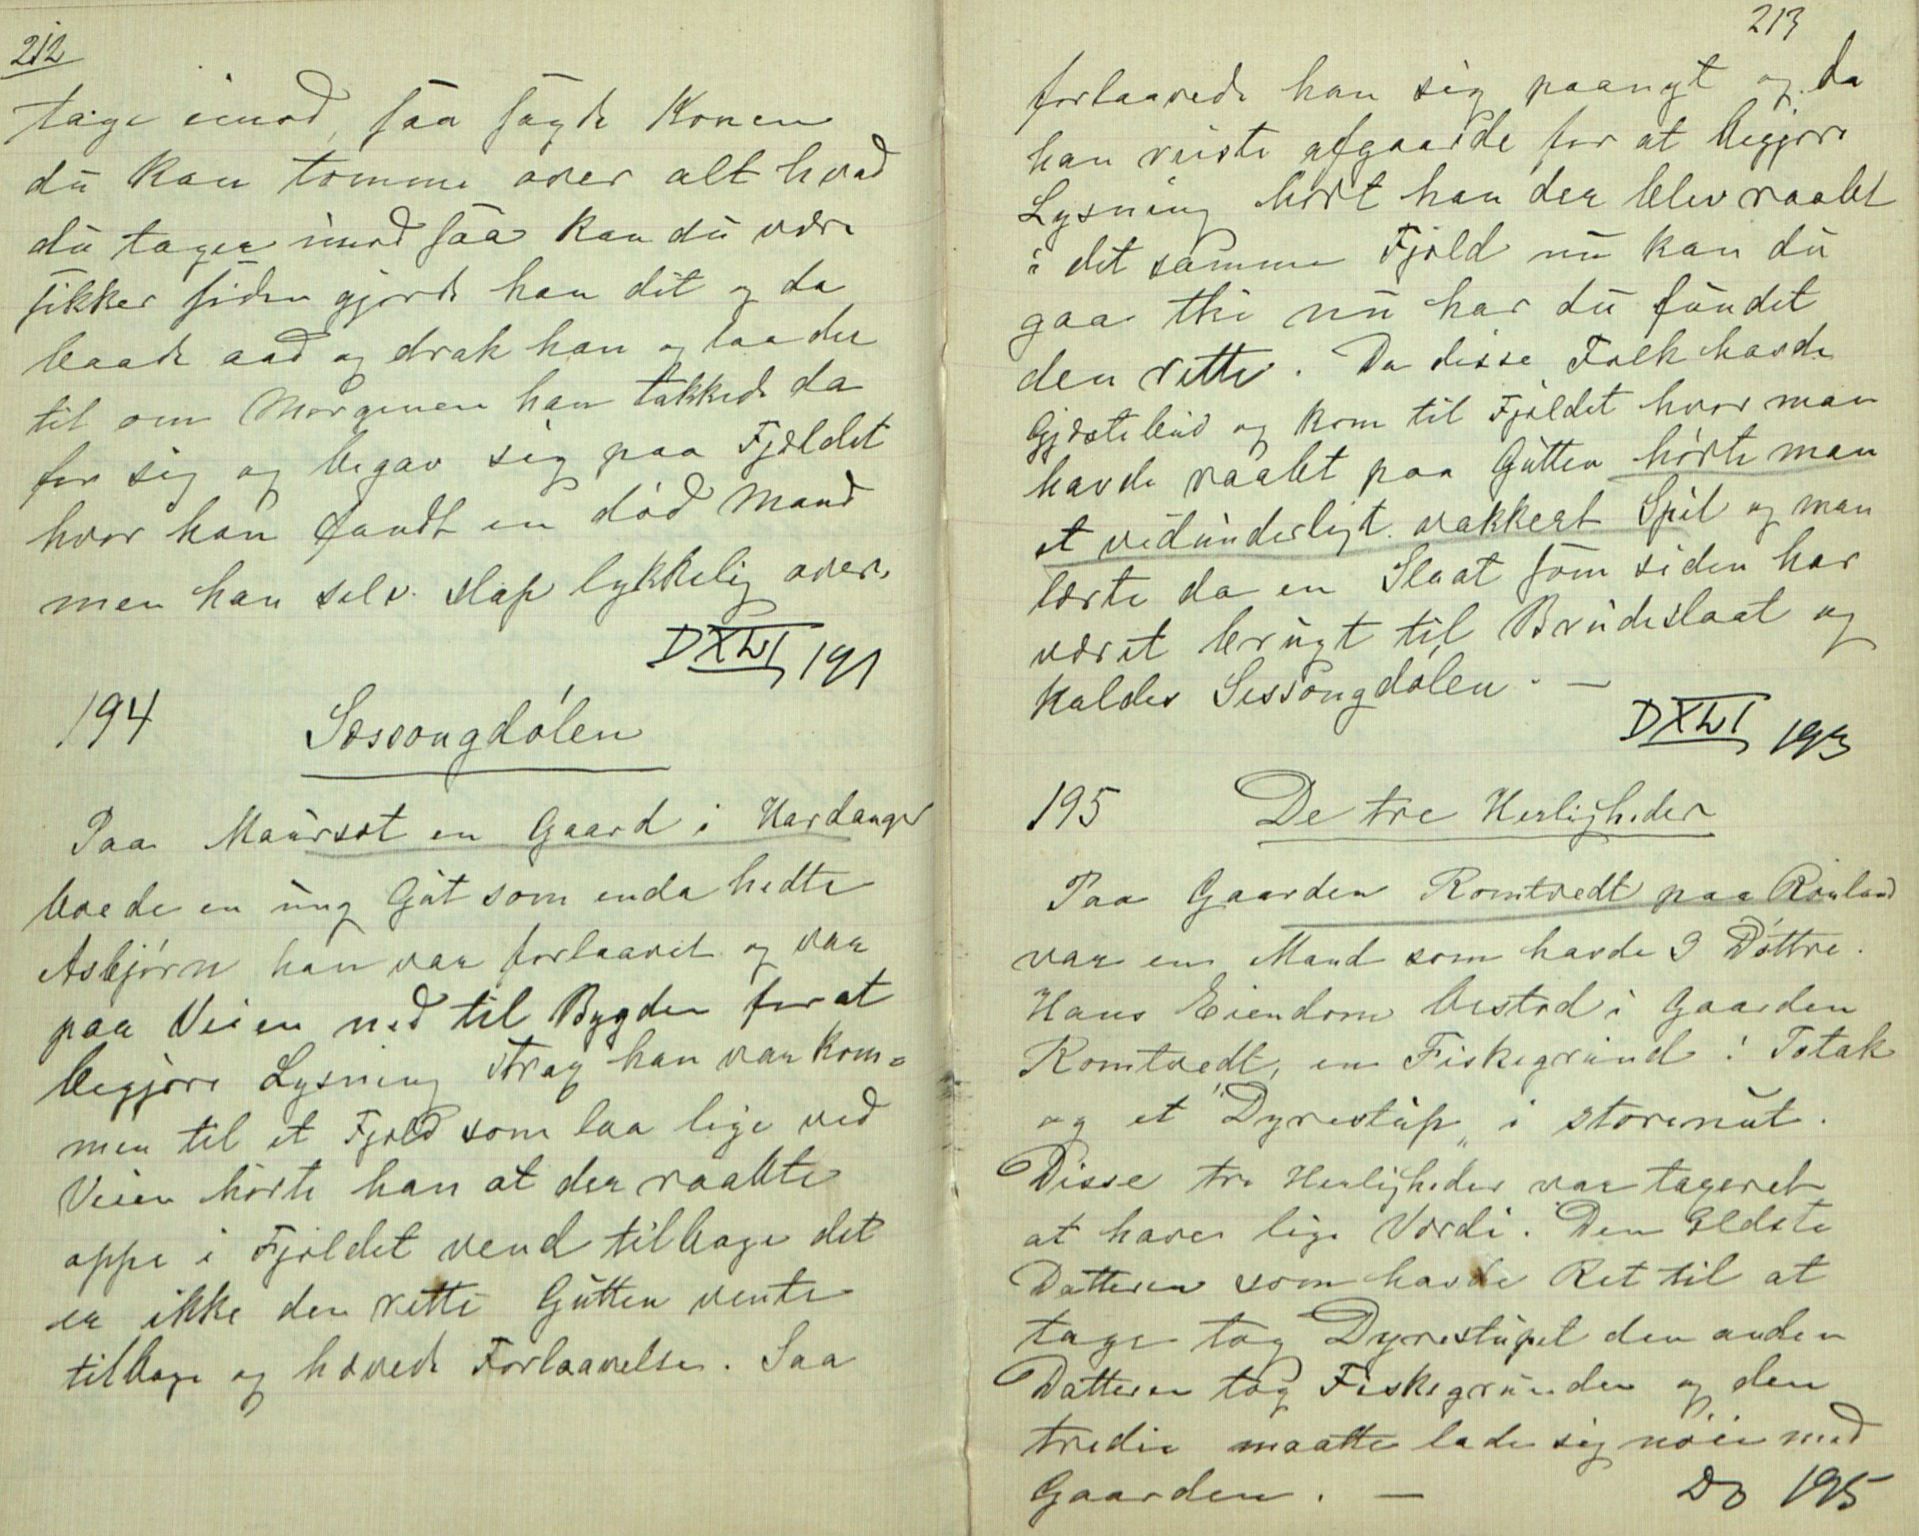 212
tage imod, saa sagde Konen
du kan tømme over alt hvad
du tager imod saa kan du være
sikker siden gjorde han dit og da
baade aad og drak han og laa der
til om Morgenen han takkede da
for sig og begav sig paa Fjeldet
hvor han fandt en død Mand
men han selv slap lykkelig over.
DXLVI 191
194 Sessongdølen
Paa Maurset en Gaard i Hardanger
boede en ung Gut som enda hedte
Asbjørn han var forlaavet og var
paa Veien ned til Bygden for at
begjøre Lysning strax han var kom=
men til et Fjeld som laa lige ved
Veien hørte han at der raabte
oppe i Fjeldet vend tilbage det
er ikke den rette Gutten vente
tilbage og hævede Forlaavelse. Saa
213
forlaavede han sig paanyt og da
han reiste afgaarde for at begjøre
Lysning hørt han der blev raabt
i det samme Fjeld nu kan du
gaa thi nu har du fundet
den rette. Da disse Folk havde
Gjæstebud og kom til Fjeldet hvor man
havde raabt paa Gutten hørte man
et vidunderligt vakkert Spil og man
lærte da en Slaat som siden har
været brugt til Brudeslaat og
kaldes Sessongdølen. —
DXLVI 193
195 De tre Herligheder
Paa Gaarden Romtvedt paa Rauland
var en Mand som havde 3 Døttre.
Hans Eiendom bestod i Gaarden
Romtvedt, en Fiskegrund i Totak
og et "Dyrestup" i Storenut.
Disse tre Herligheder var tageret
at have lige Værdi. Den Eldste
Datteren som havde Ret til at
tage tog Dyrestupet den anden
Datteren tog Fiskegrunden og den
tredie maatte lade sig nøie med
Gaarden. —
Do 195